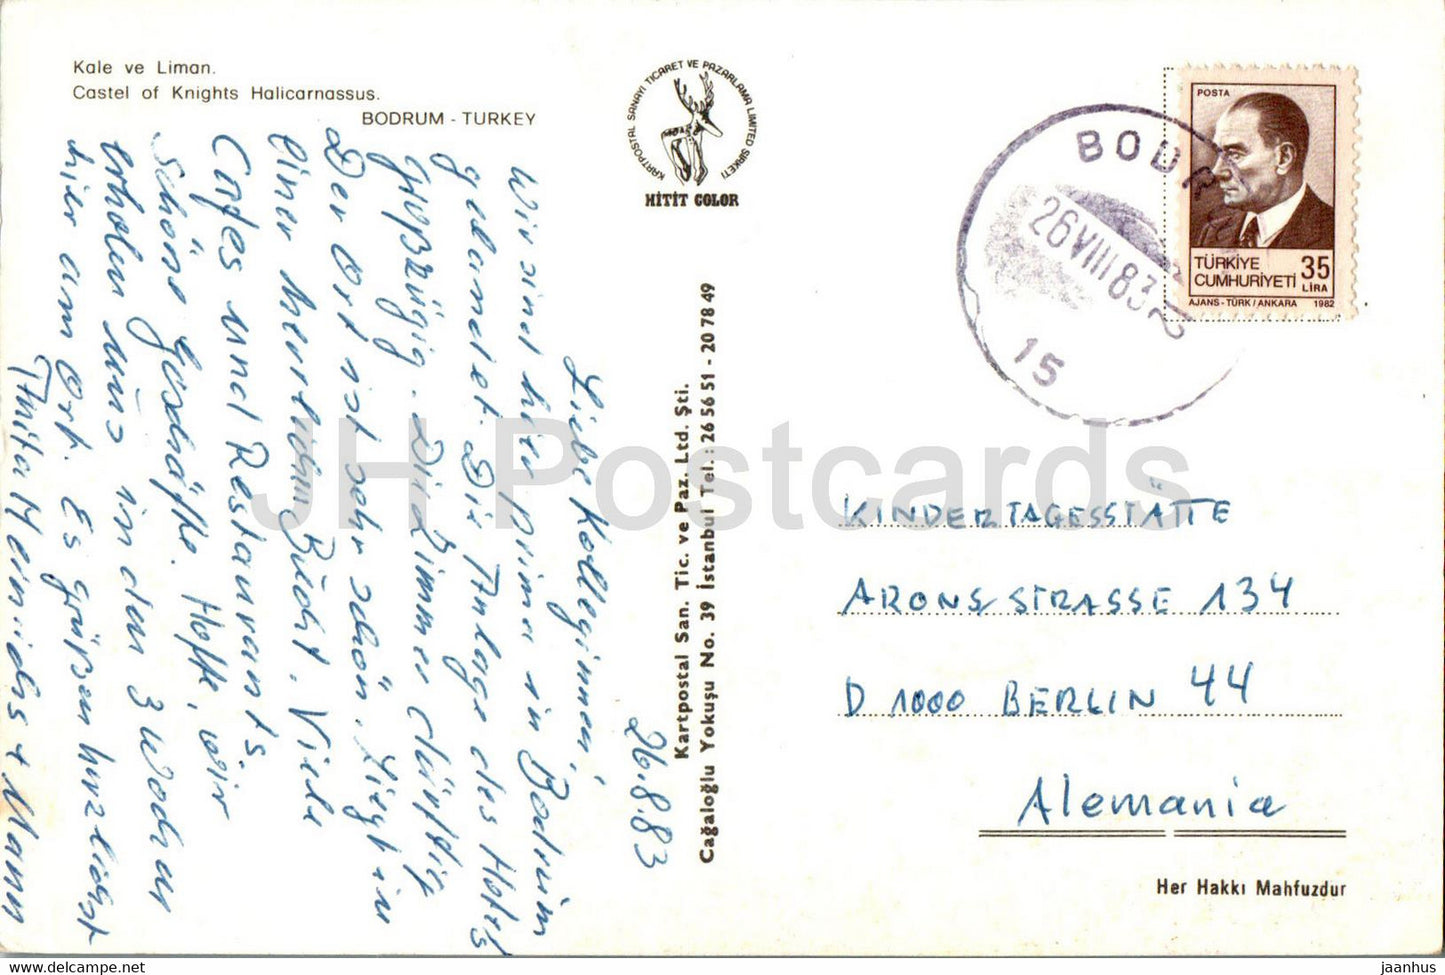 Kale ve Liman.
Castel of Knights Halicarnassus.
BODRUM - TURKEY
KARTPOSTAL SANAYI TICARET VE PAZARLAMA LIMITED SIRKETI
HİTİT COLOR
26.8.83
Liebe Kolleginnen,
wir sind hier prima in Bodrum
gelandet. Die Anlage des Hotels
großzügig. Die Zimmer dürftig
Der Ort ist sehr schön. Liegt in
einer herrlichen Bucht. Viele
Cafes und Restaurants.
Schöne Geschäfte. Hoffe, wir
erholen uns in den 3 Wochen
hier am Ort. Es grüßen herzlichst
+ Mann
Kartpostal San. Tic. ve Paz. Ltd. Şti.
Cağaloğlu Yokuşu No. 39 İstanbul Tel.: 26 56 51 - 20 78 49
BODR
26 VIII 83
15
POSTA
TÜRKİYE
CUMHURİYETİ
35
LİRA
AJANS - TÜRK / ANKARA 1982
KINDERTAGESSTÄTTE
ARONSSTRASSE 134
D 1000 BERLIN 44
Alemania
Her Hakkı Mahfuzdur
JH Postcards
https://www.delcampe.net
jaanhus